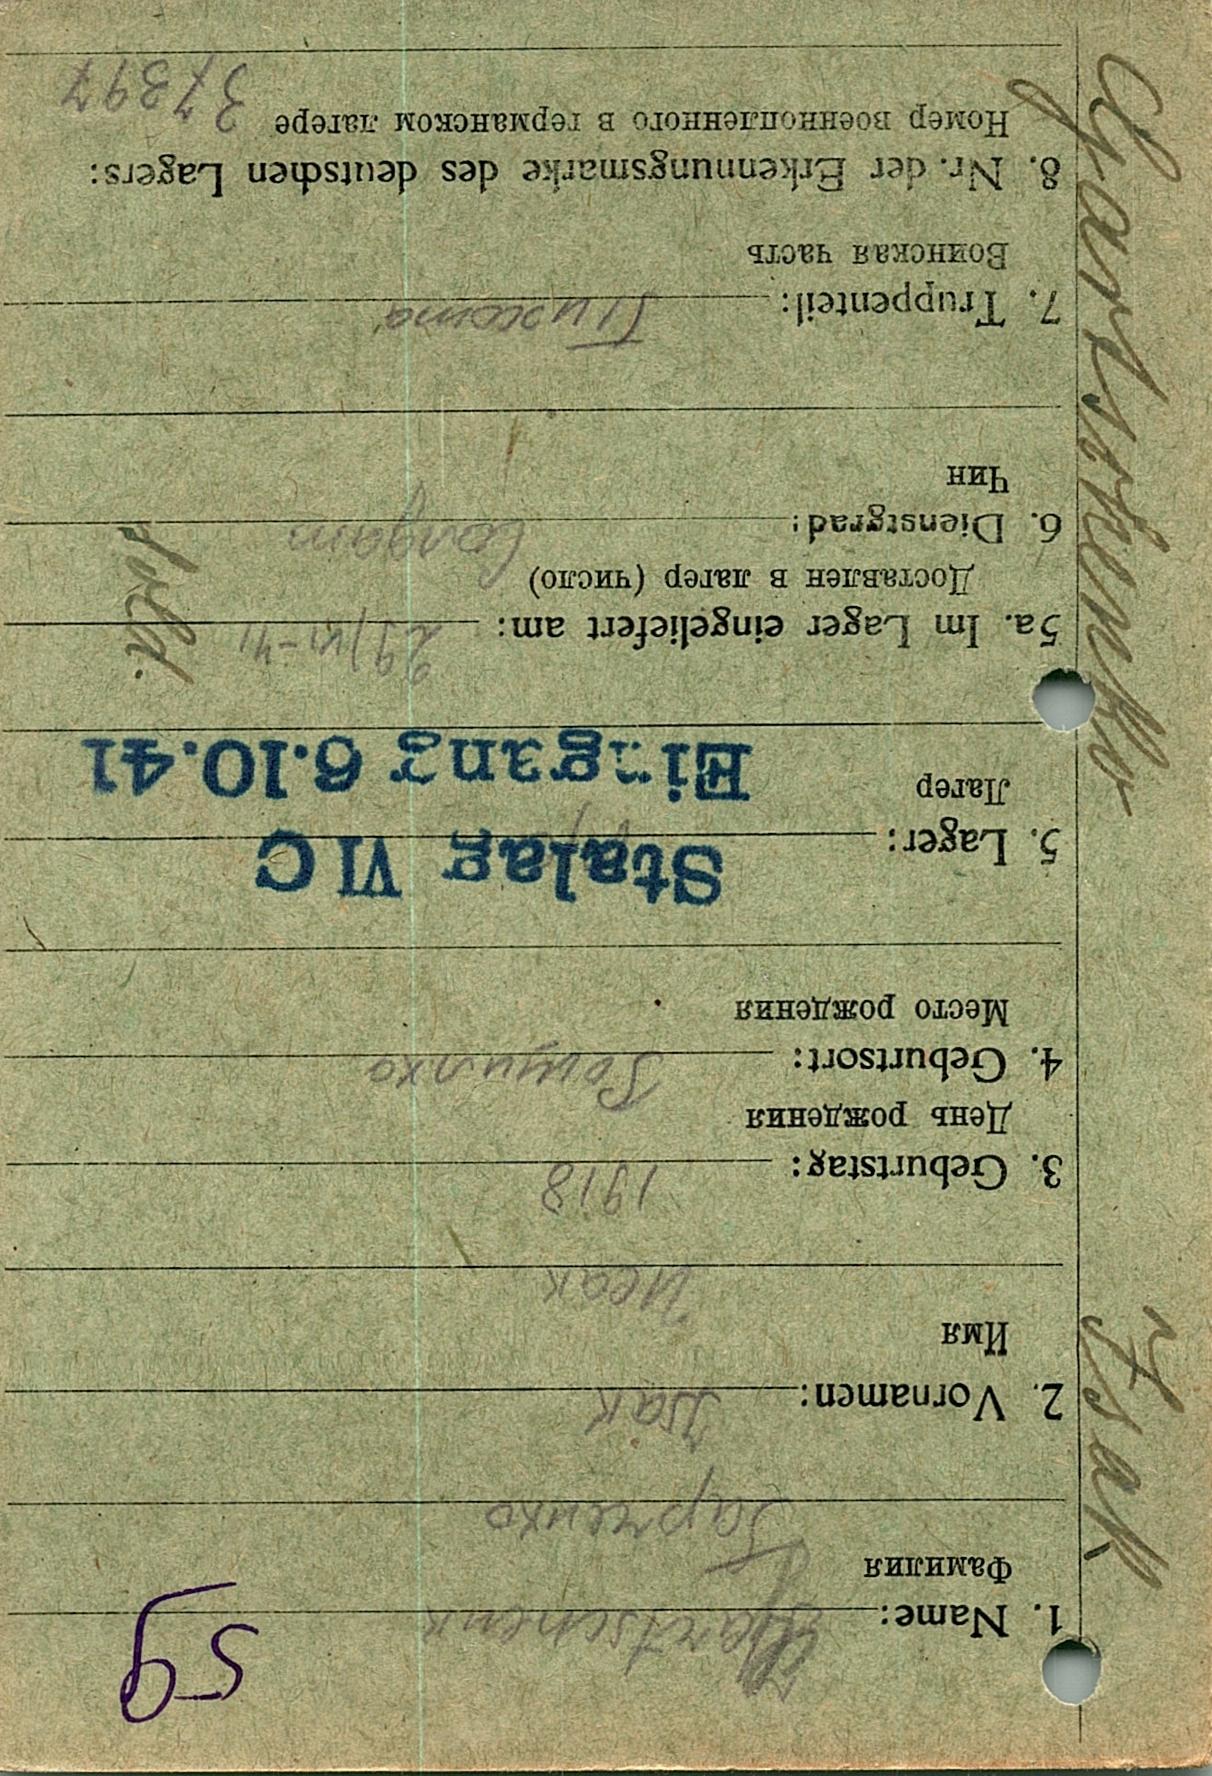 59
1. Name: Hartschenk
Фамилия
Гарченко
2. Vornamen: Isak
Имя
Исак
3. Geburtstag: 1918
День рождения
4. Geburtsort:
Место рождения
5. Lager: Stalag VI C
Лагер
Eingang 6.10.41
5a. Im Lager eingeliefert am: 29/VI-41
Доставлен в лагер (число)
6. Dienstgrad: Солдат
Sold.
Чин
7. Truppenteil: Пихота
Воинская часть
8. Nr. der Erkennungsmarke des deutschen Lagers:
Номер военнопленного в германском лагере 37397
Isak